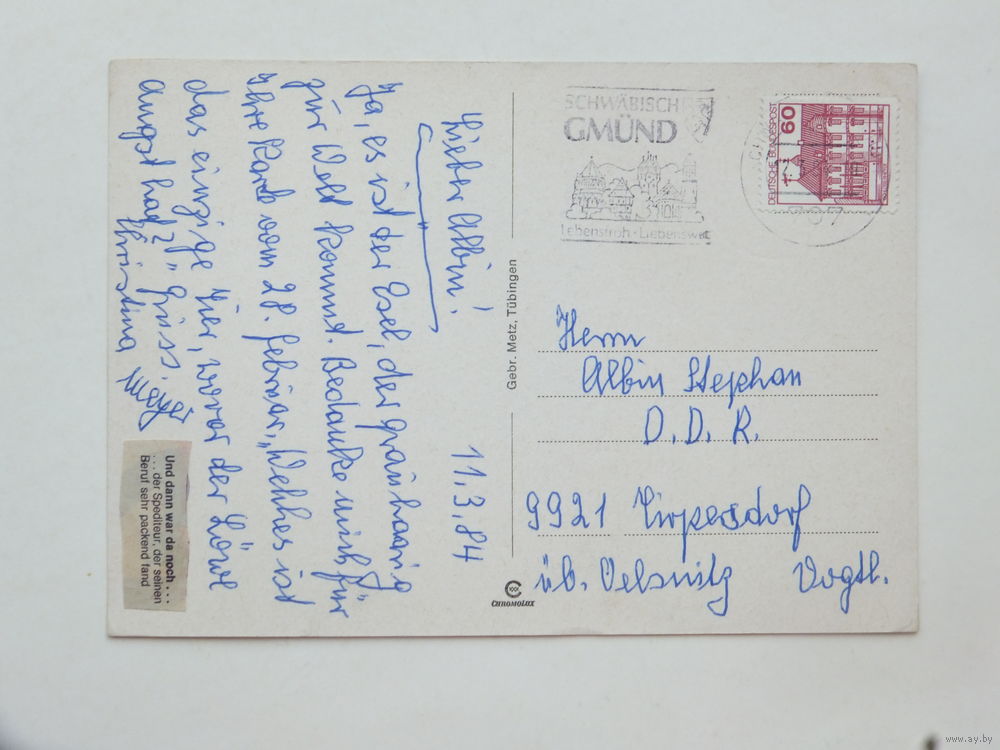 11.3.84
Lieber Albin!
Ja, es ist der Esel, der grauhaarig
zur Welt kommt. Bedanke mich für
Ihre Karte vom 28. Februar. „Welches ist
das einzige Tier, wovor der Löwe
angst hat?" Grüss.
Christina
Und dann war da noch ...
... der Spediteur, der seinen
Beruf sehr packend fand
Gebr. Metz, Tübingen
CHROMOLUX
SCHWÄBISCH
GMÜND
Lebensfroh · Liebenswert
DEUTSCHE BUNDESPOST
60
Herrn
Albin Stephan
D. D. R.
9921 Tirpersdorf
üb. Oelsnitz Vogtl.
www.ay.by